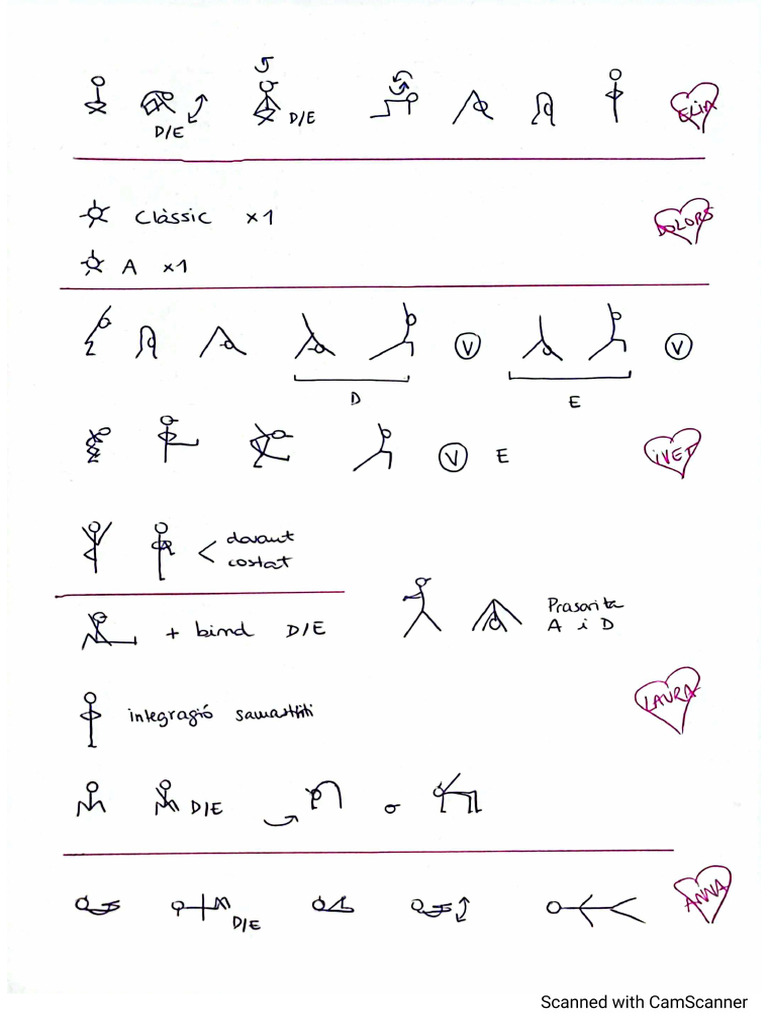 D/E
D/E
ELIA
Clàssic x1
DOLORS
A x1
V
V
D
E
V E
IVET
davant
costat
Prasarita
A i D
+ bind D/E
LAURA
integració samasthiti
D/E
o
ANNA
D/E
Scanned with CamScanner